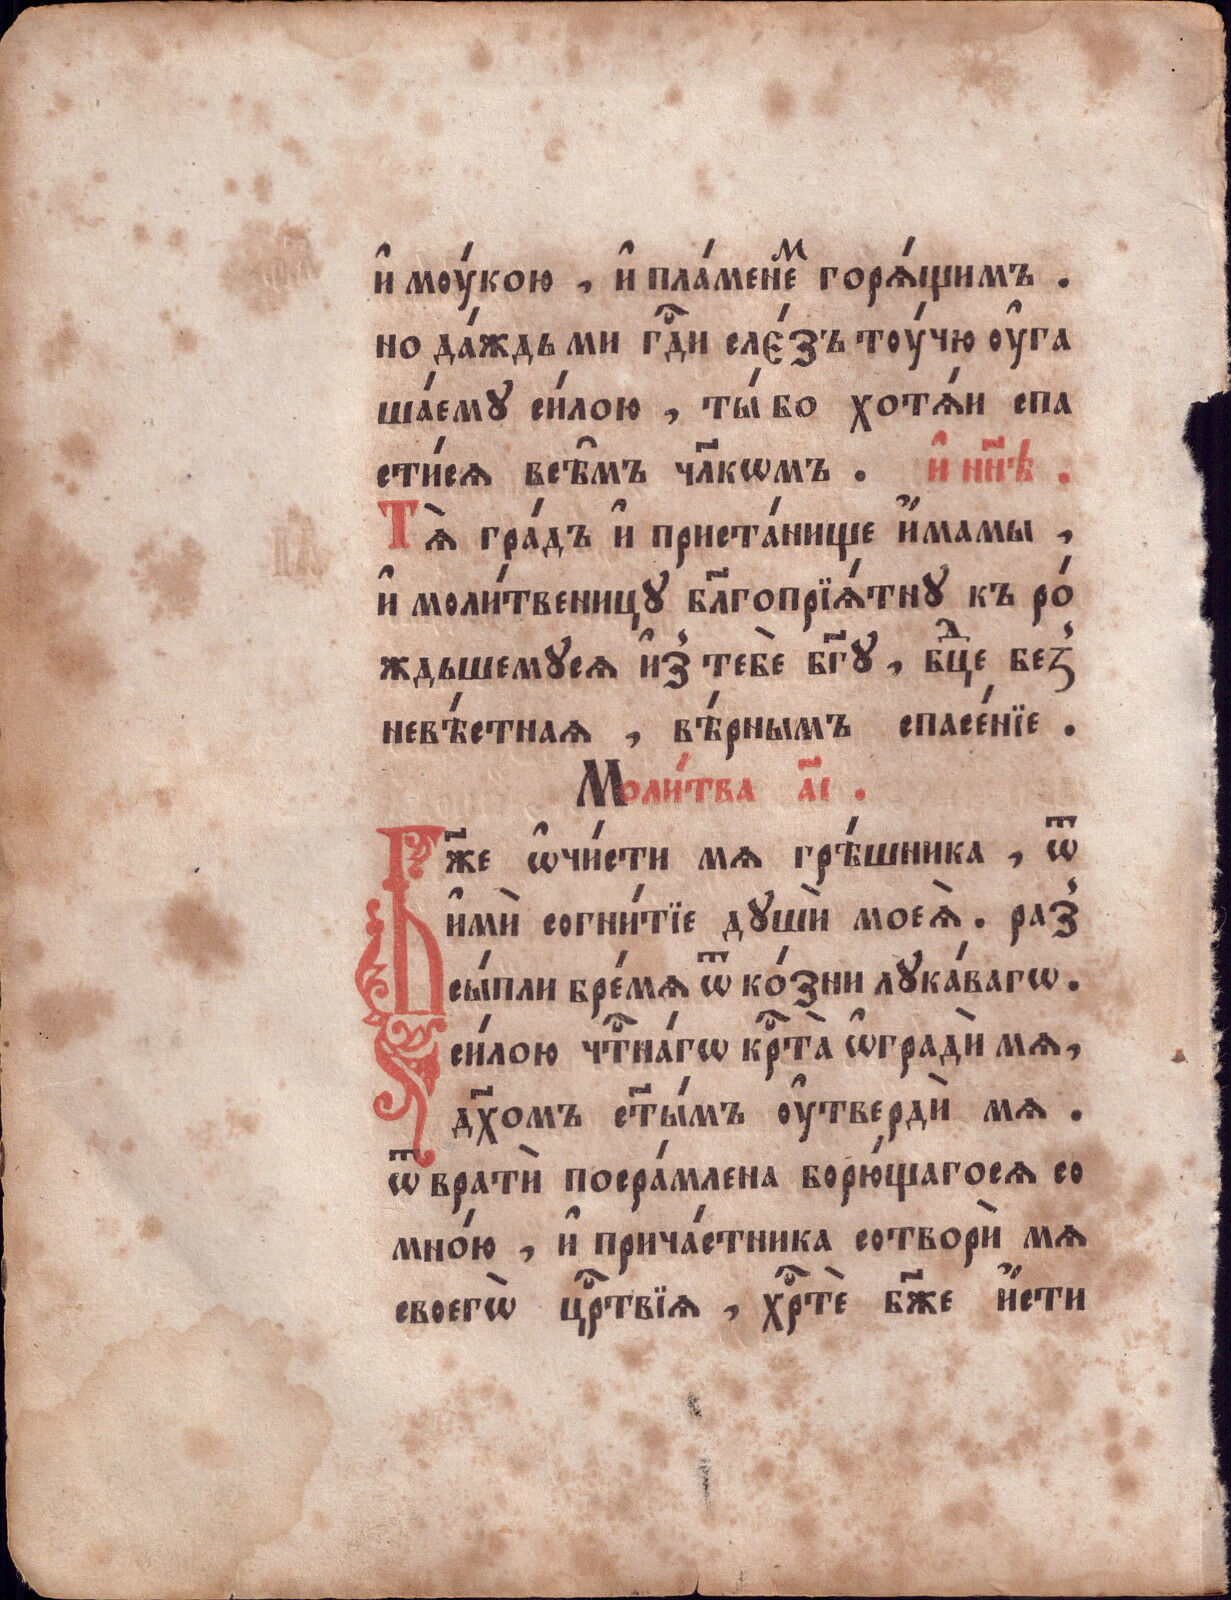 и҆ мꙋ́кою , и҆ пла́менеⷨ горѧ́щимъ .
но да́ждь ми гдⷭ҇и сле́зъ тоу́чю оу҆га
ша́емꙋ си́лою , ты́ бо хотѧ́и спа
сти́сѧ всѣ̑мъ чл҃кѡмъ . и҆ нн҃ѣ .
Тѧ̀ гра́дъ и҆ приста́нище и҆́мамы ,
и҆ моли́твеницꙋ бл҃гопрїѧ́тнꙋ къ ро́
ждьшемꙋсѧ и҆з̾ тебѐ бг҃ꙋ , бцⷣе без̾
невѣ́стнаѧ , вѣ́рнымъ спасе́нїе .
Моли́тва а҃і .
Бж҃е ѡ҆чи́сти мѧ грѣ́шника , ѿ
и҆мѝ согни́тїе дꙋшѝ моеѧ̀ . раз̾
сы́пли бре́мѧ ѿ ко́зни лꙋка́вагѡ .
си́лою чтⷭ҇на́гѡ крⷭ҇та̀ ѡ҆градѝ мѧ ,
дх҃омъ ст҃ы́мъ оу҆твердѝ мѧ .
ѿвратѝ посра́млена борю́щагосѧ со
мно́ю , и҆ прича́стника сотворѝ мѧ
своегѡ̀ црⷭ҇твїѧ , хрⷭ҇тѐ бж҃е и҆́сти